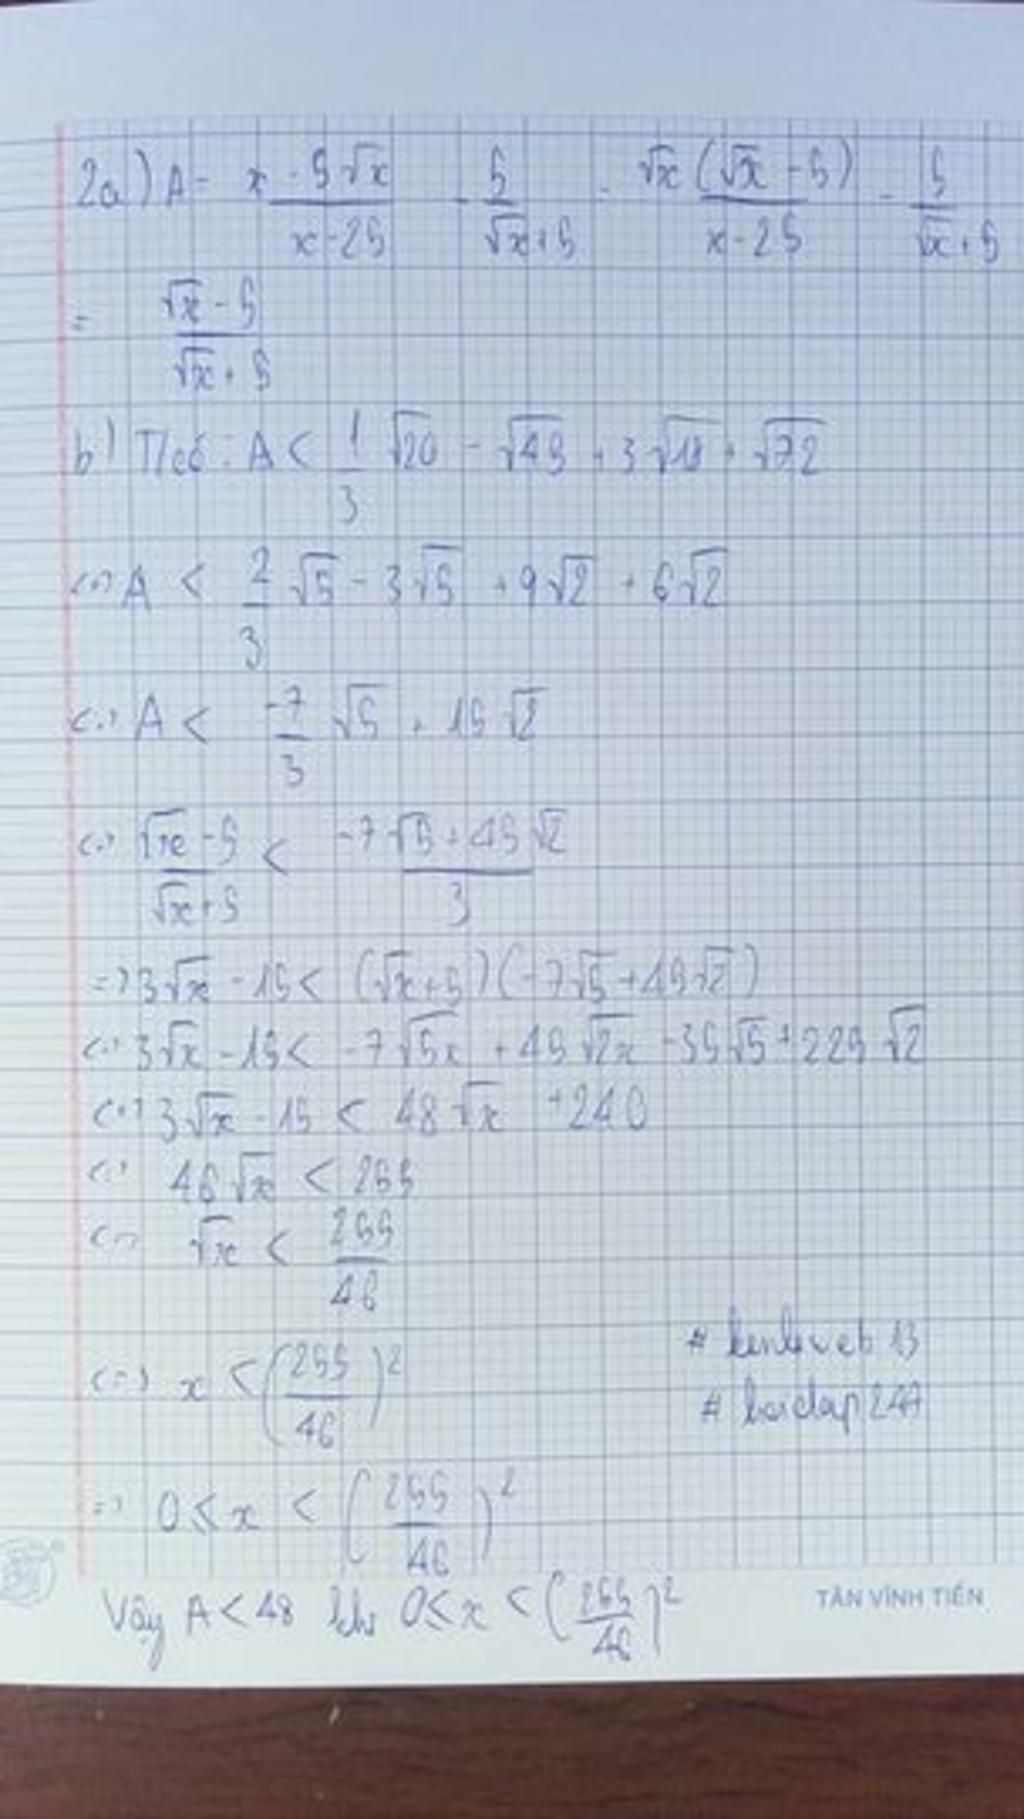 2a) A = x - 5√x / x - 25 - 5 / √x + 5 = √x (√x - 5) / x - 25 - 5 / √x + 5
= √x - 5 / √x + 5
b) A < 1/3 √20 - √45 + 3√18 + √72
<=> A < 2/3 √5 - 3√5 + 9√2 + 6√2
<=> A < -7/3 √5 + 15√2
<=> √x - 5 / √x + 5 < -7√5 + 45√2 / 3
=> 3√x - 15 < (√x + 5)(-7√5 + 45√2)
<=> 3√x - 15 < -7√5x + 45√2x - 35√5 + 225√2
<=> 3√x - 15 < 48√x + 240
<=> 46√x < 255
<=> √x < 255/46
<=> x < (255/46)²
=> 0 ≤ x < (255/46)²
Vậy A < 48 khi 0 ≤ x < (255/46)²
# 13
# 247
TÂN VĨNH TIẾN